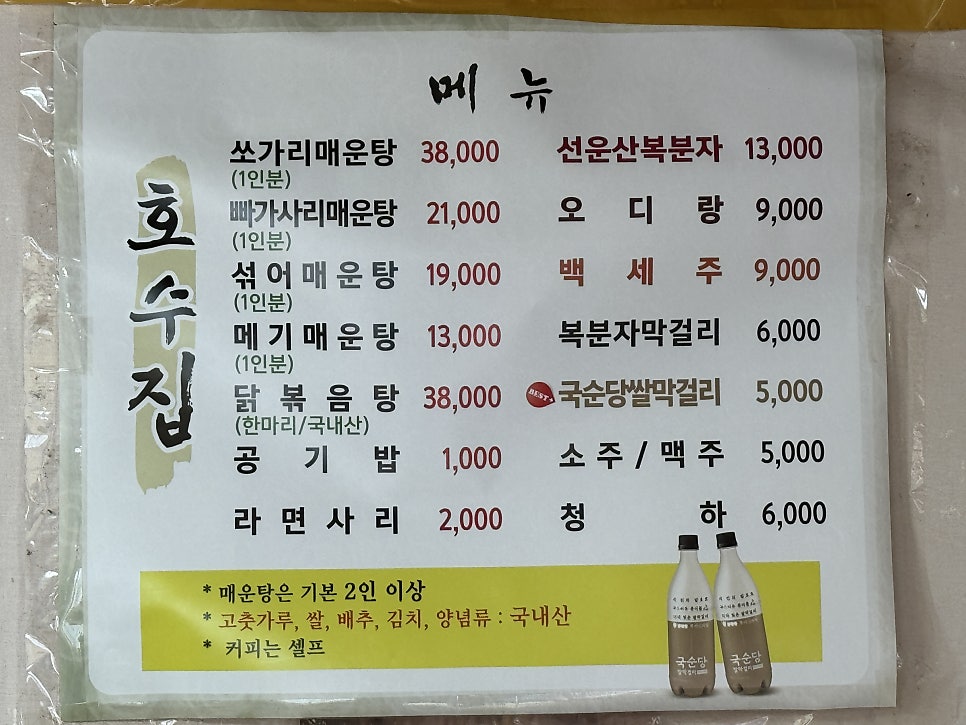 메뉴
호수집
쏘가리매운탕 38,000
(1인분)
빠가사리매운탕 21,000
(1인분)
섞어매운탕 19,000
(1인분)
메기매운탕 13,000
(1인분)
닭볶음탕 38,000
(한마리/국내산)
공기밥 1,000
라면사리 2,000
선운산복분자 13,000
오디랑 9,000
백세주 9,000
복분자막걸리 6,000
BEST 국순당쌀막걸리 5,000
소주/맥주 5,000
청하 6,000
* 매운탕은 기본 2인 이상
* 고춧가루, 쌀, 배추, 김치, 양념류 : 국내산
* 커피는 셀프
국순당
쌀막걸리
국순당
쌀막걸리